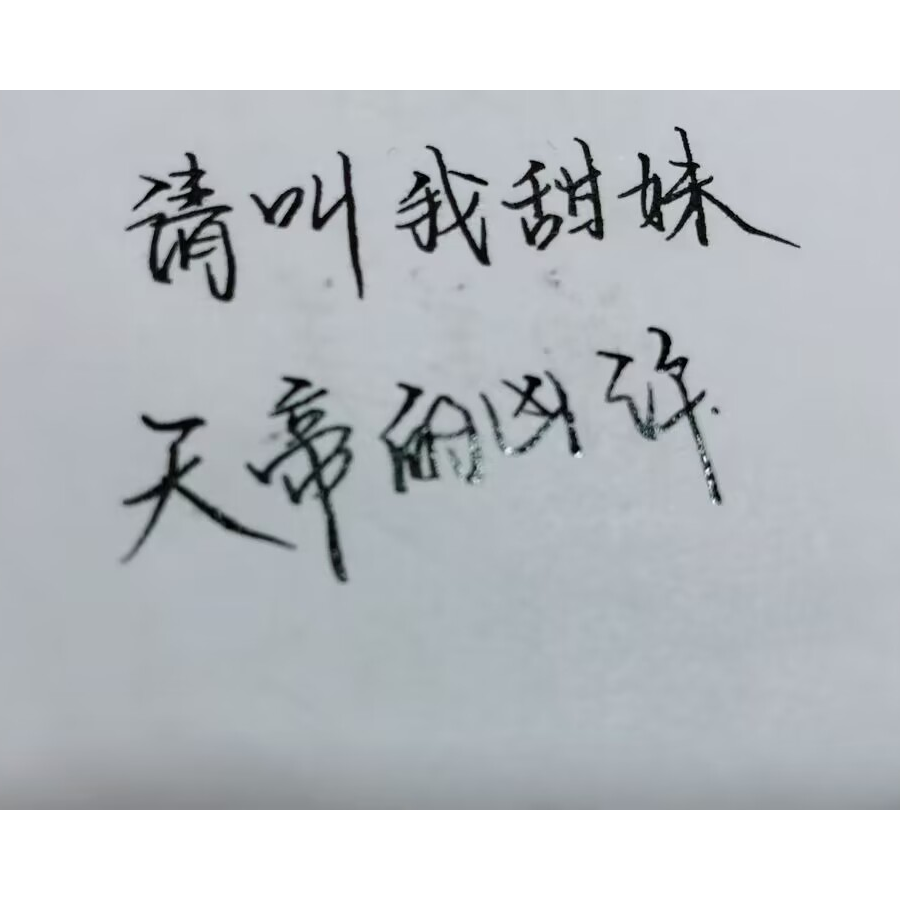 请叫我甜妹
天帝的凶许